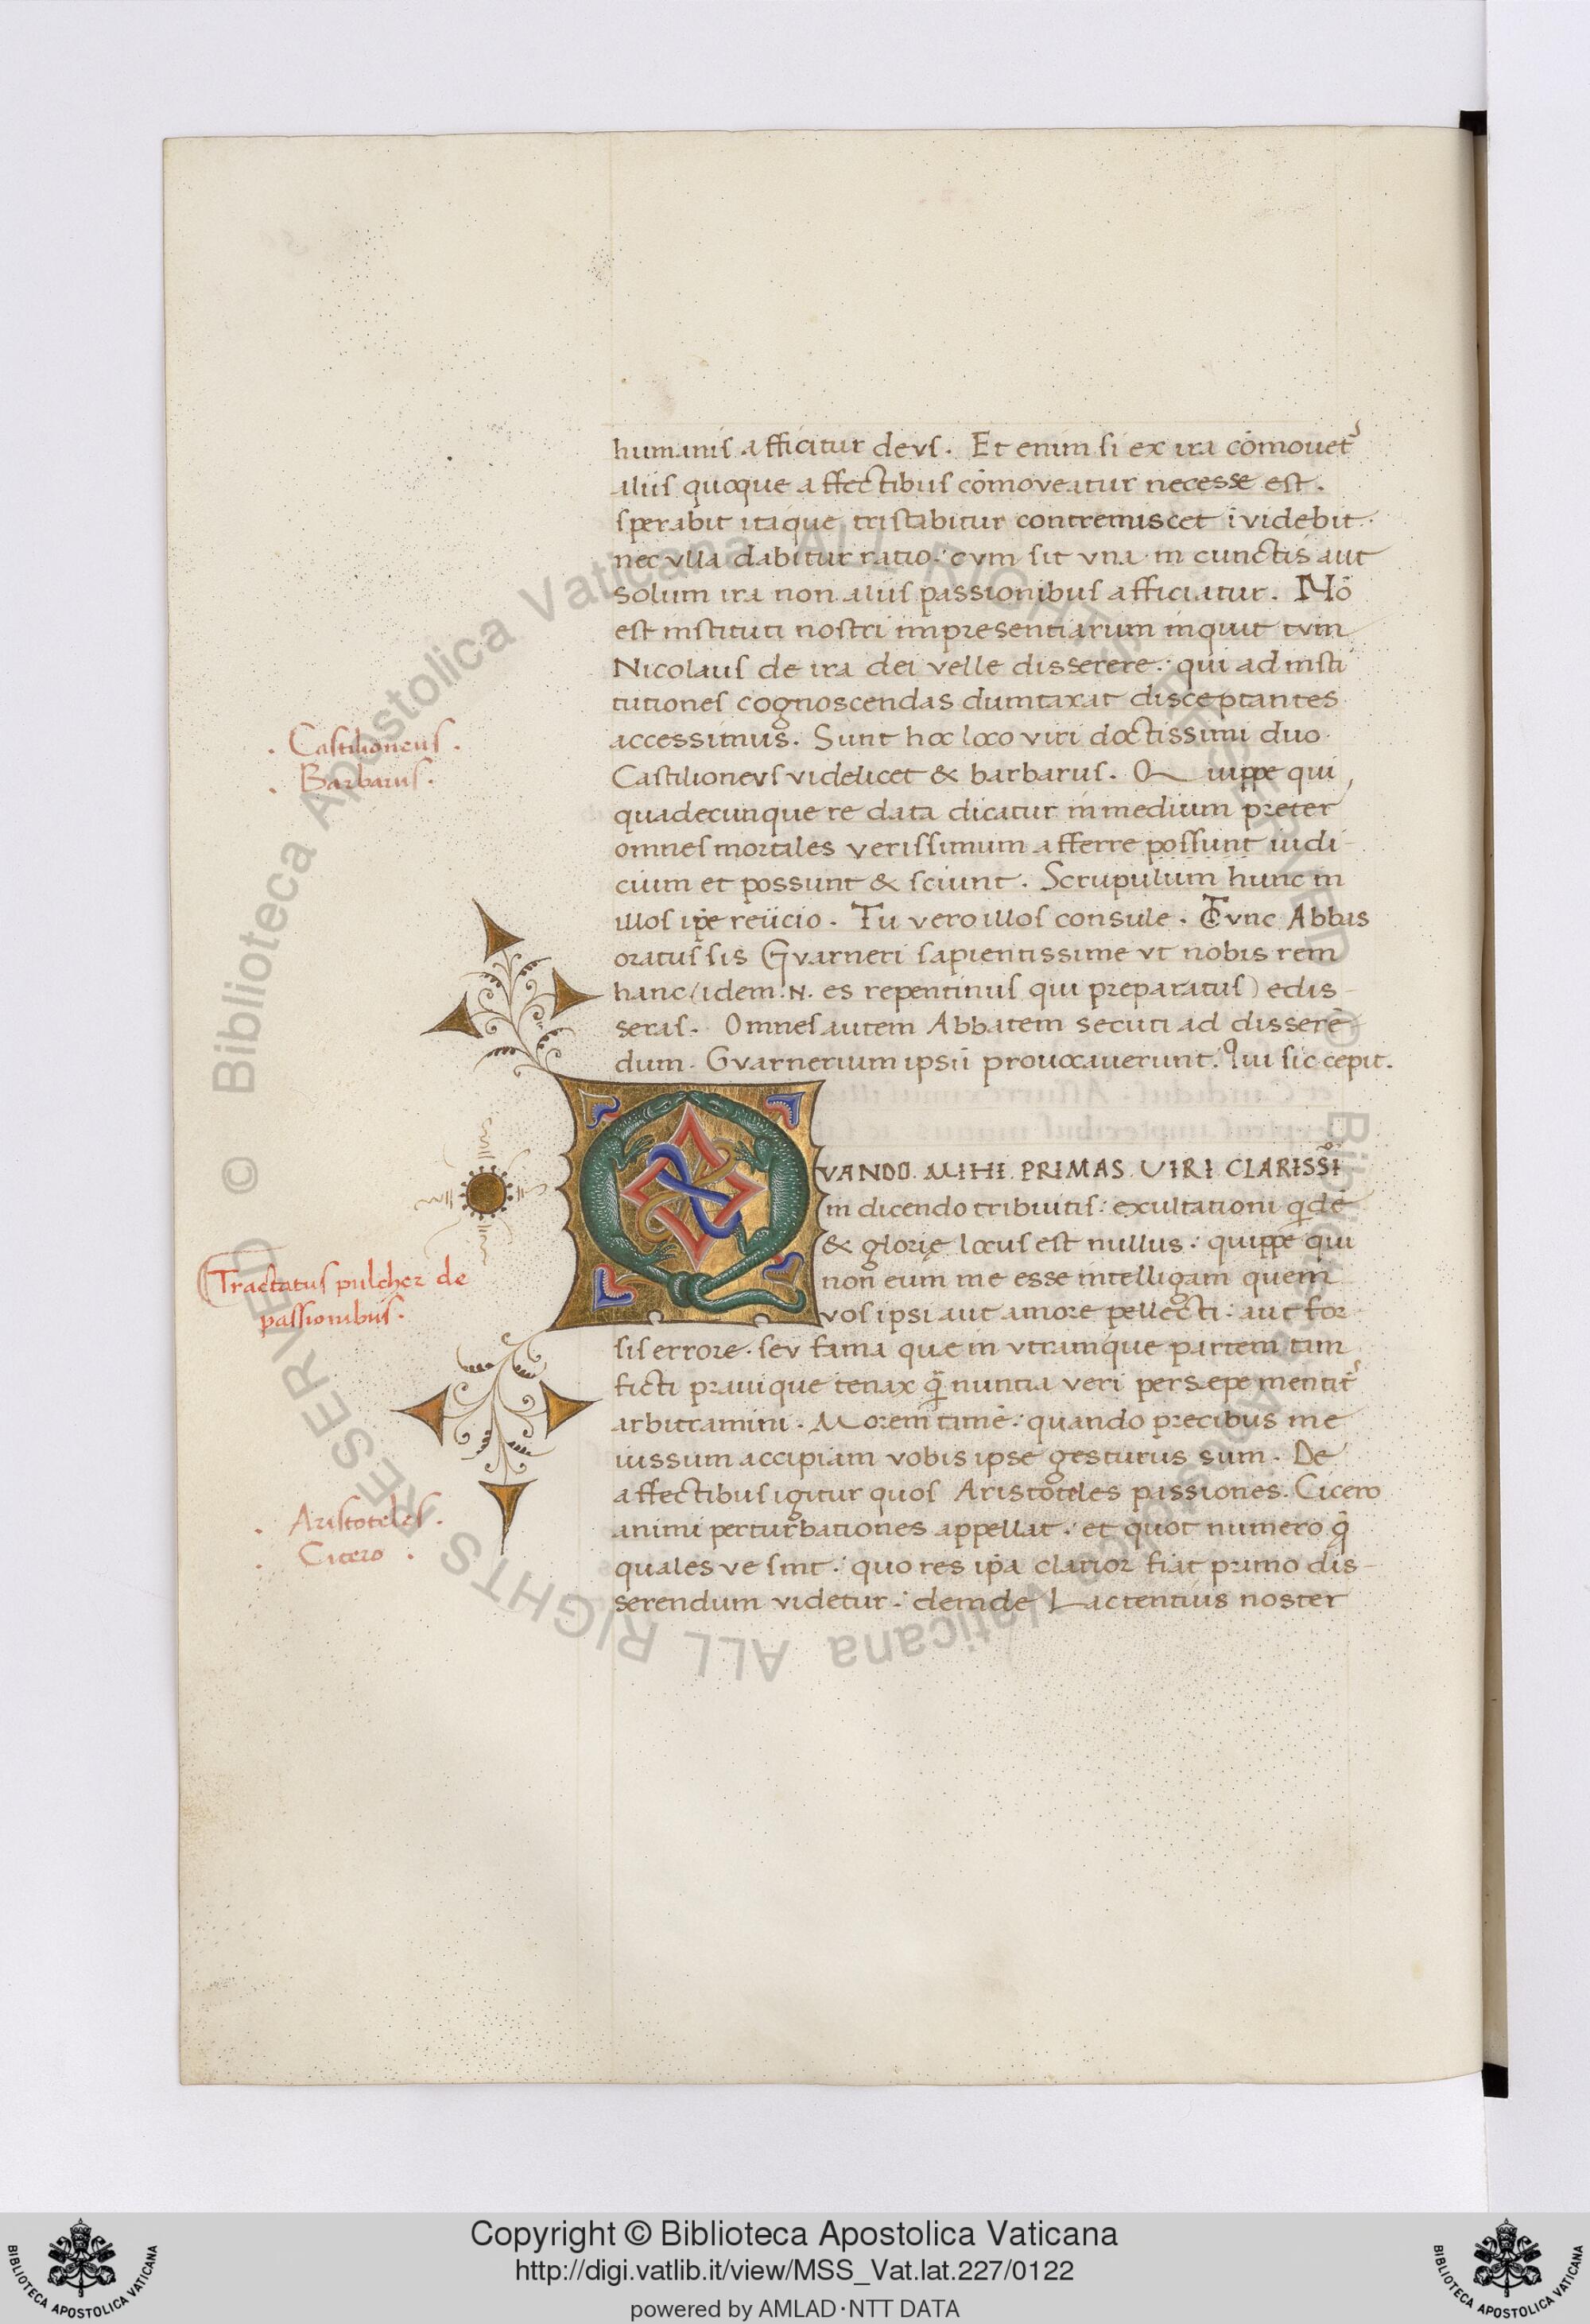 humanis afficitur deus. Et enim si ex ira cōmouet᷑
aliis quoque affectibus cōmoveatur necesse est.
sperabit itaque tristabitur contremiscet īvidebit.
nec vlla dabitur ratio: cvm sit vna in cunctis aut
solum ira non aliis passionibus afficiatur. Nō
est instituti nostri impresentiarum inquit tvm
Nicolaus de ira dei velle disserere: qui ad insti
tutiones cognoscendas dumtaxat disceptantes
accessimus. Sunt hoc loco viri doctissimi duo
Castilionevs videlicet & barbarus. Quippe qui
quadecunque re data dicatur in medium preter
omnes mortales verissimum afferre possunt iudi-
cium et possunt & sciunt. Scrupulum hunc in
illos ip̄e reiicio. Tu vero illos consule. Tvnc Abbas
oratus sis Gvarneri sapientissime vt nobis rem
hanc (idem .N. es repentinus qui preparatus) edis-
seras. Omnes autem Abbatem secuti ad disserē-
dum. Gvarnerium ipsū provocaverunt. Qui sic cepit.
QVANDO MIHI PRIMAS VIRI CLARISSI̊
in dicendo tribuitis: exultationi q̄dē
& glorię locus est nullus: quippe qui
non eum me esse intelligam quem
vos ipsi aut amore pellecti: aut for
sis errore. sev fama que in vtranque partem tam
ficti pravique tenax q̄ nuntia veri persepe mentit᷑
arbitramini. Morem tamē: quando precibus me
iussum accipiam vobis ipse gesturus sum. De
affectibus igitur quos Aristoteles passiones. Cicero
animi perturbationes appellat: et quot numero q̄
quales ve sint: quo res ip̄a clarior fiat primo dis-
serendum videtur: deinde Lactentius noster
. Castilioneus .
. Barbarus .
Tractatus pulcher de
passionibus.
. Aristoteles .
. Cicero .
© Biblioteca Apostolica Vaticana ALL RIGHTS RESERVED
© Biblioteca Apostolica Vaticana ALL RIGHTS RESERVED
Copyright © Biblioteca Apostolica Vaticana
http://digi.vatlib.it/view/MSS_Vat.lat.227/0122
powered by AMLAD·NTT DATA
BIBLIOTECA APOSTOLICA VATICANA
BIBLIOTECA APOSTOLICA VATICANA